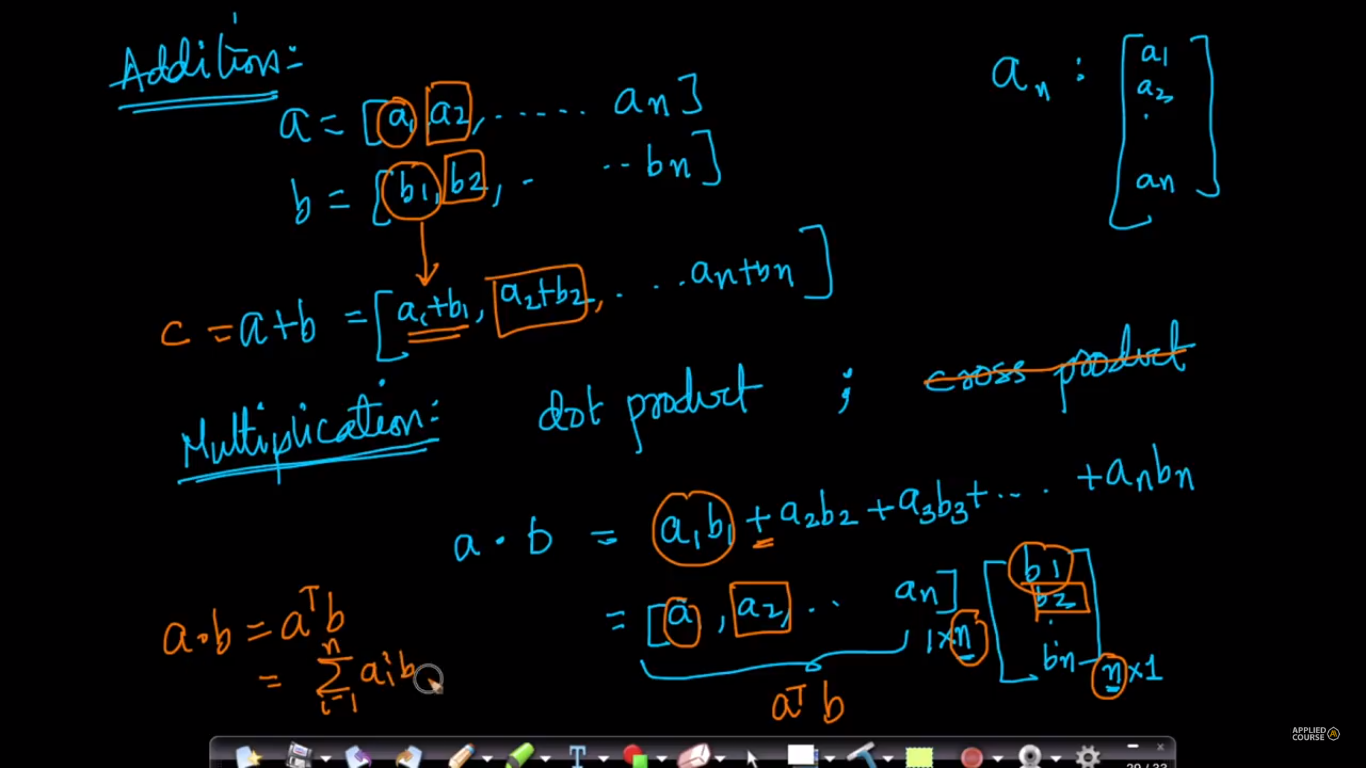 Addition:
a = [a1 a2, ...... an]
b = [b1, b2, . .. bn]
c = a+b = [a1+b1, a2+b2, . .. an+bn]
an : [a1
a2
.
an]
Multiplication: dot product ; cross product
a · b = a1b1 + a2b2 + a3b3+ ... . +anbn
= [a, a2, .. an] 1×n [b1
b2
.
bn] n×1
aT b
a·b = aT b
= n Σ i=1 ai b
APPLIED
COURSE